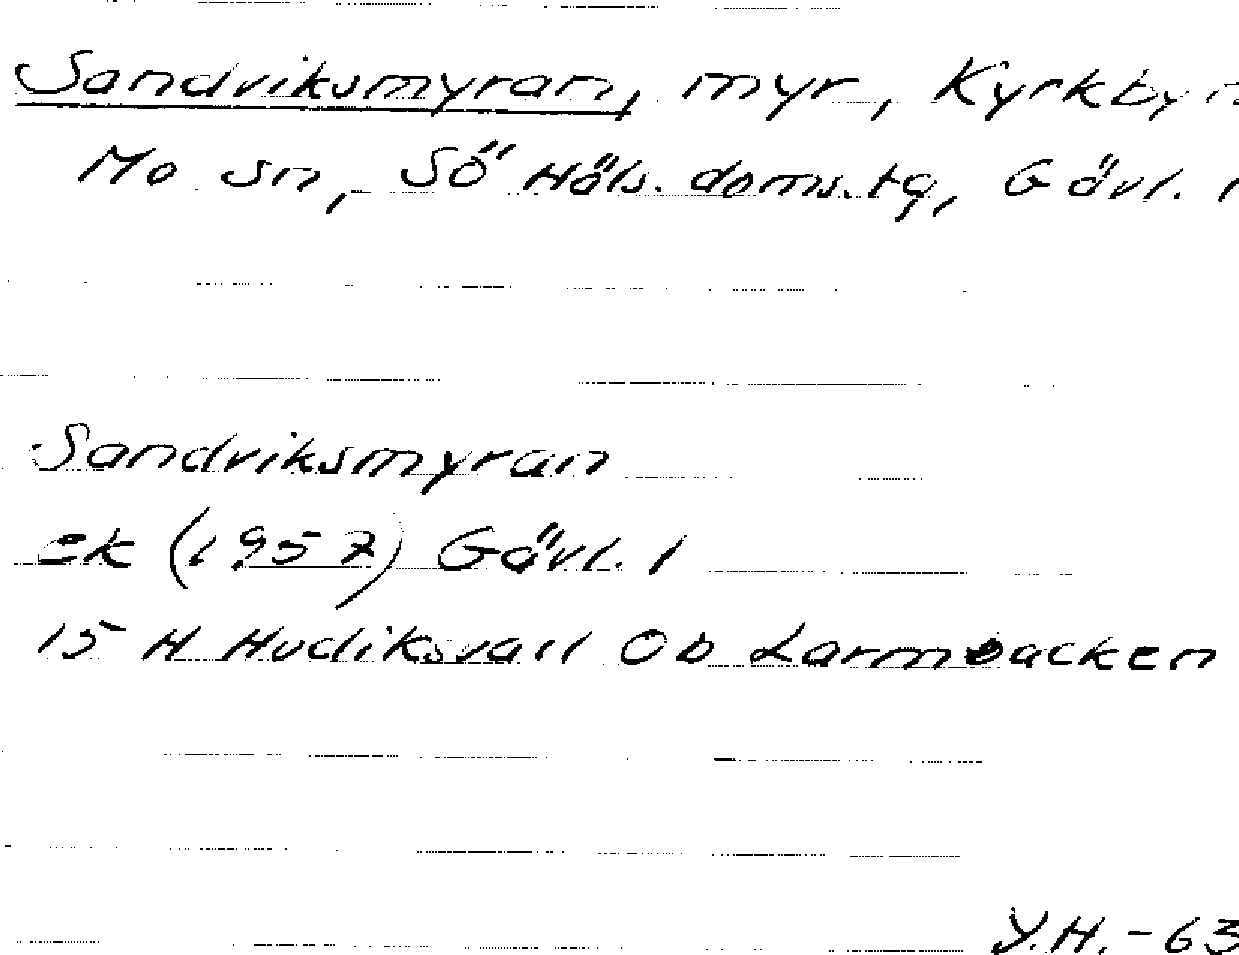 Sandviksmyran, myr, Kyrkbyn
Mo sn, Sö Häls. doms.tg, Gävl. l
Sandviksmyran
ek (1957) Gävl. l
15 H Hudiksvall Ob Larmbacken
Y.H. -63